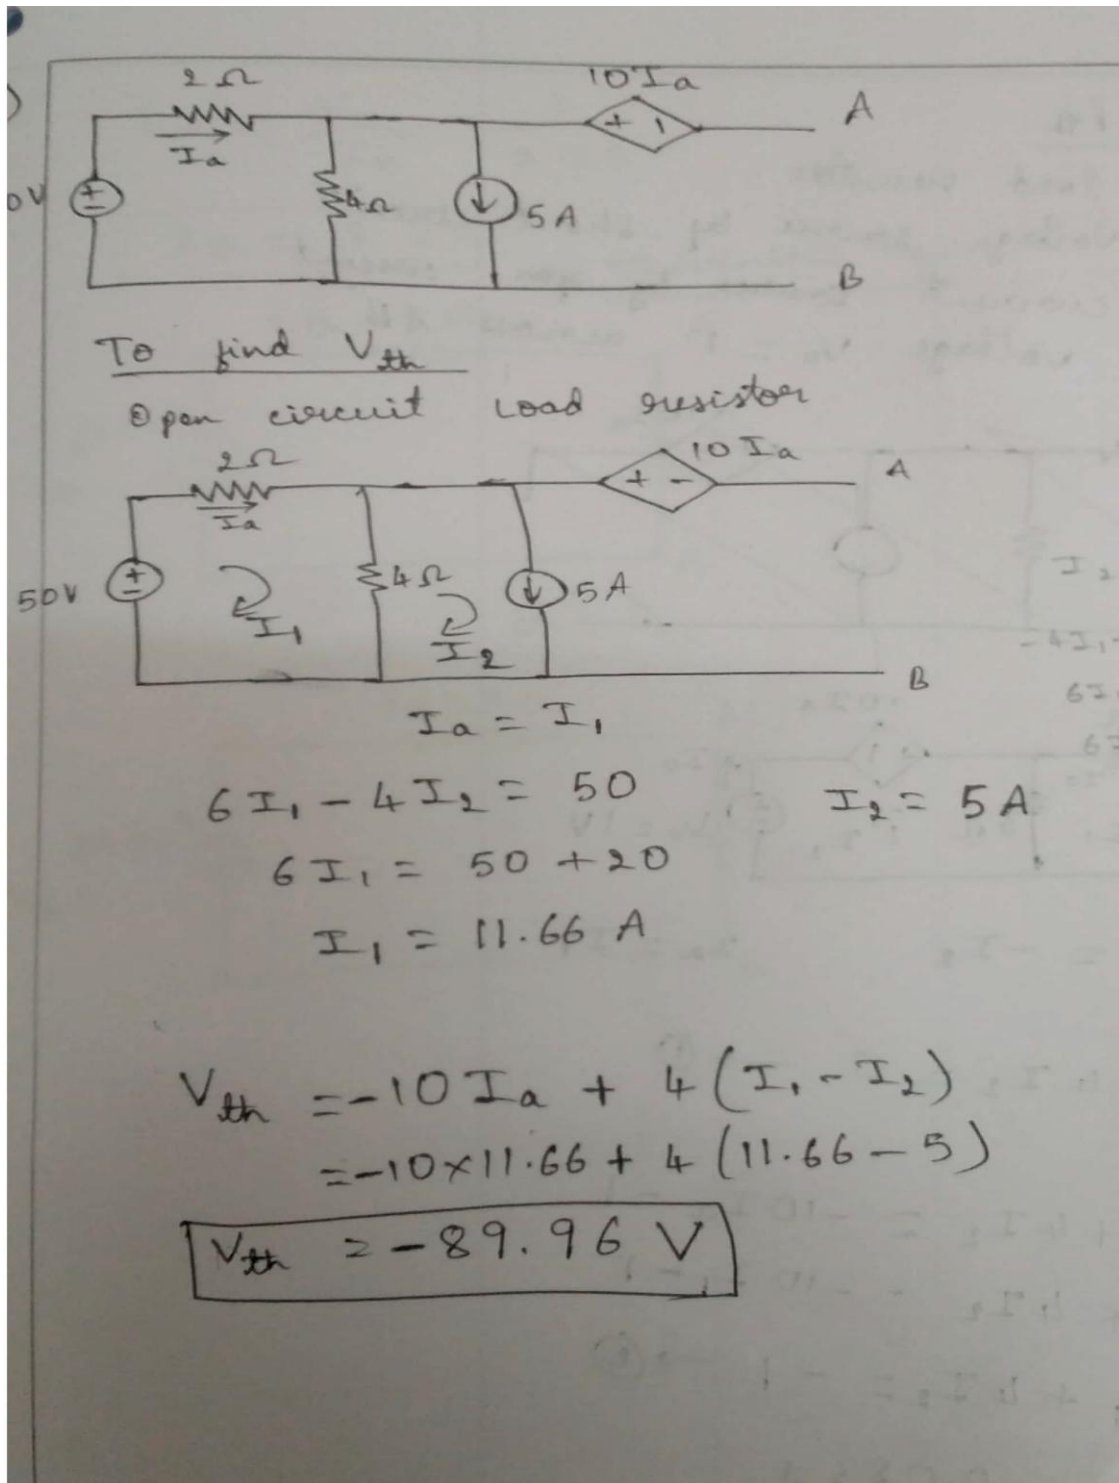 2 Ω
10 Ia
Ia
A
0V
+
-
4Ω
5 A
+ -
B
To find Vth
Open circuit Load resistor
2Ω
10 Ia
Ia
A
50V
+
-
4Ω
5 A
+ -
I1
I2
B
Ia = I1
6 I1 - 4 I2 = 50 I2 = 5 A
6 I1 = 50 + 20
I1 = 11.66 A
Vth = -10 Ia + 4 (I1 - I2)
= -10 × 11.66 + 4 (11.66 - 5)
Vth = -89.96 V